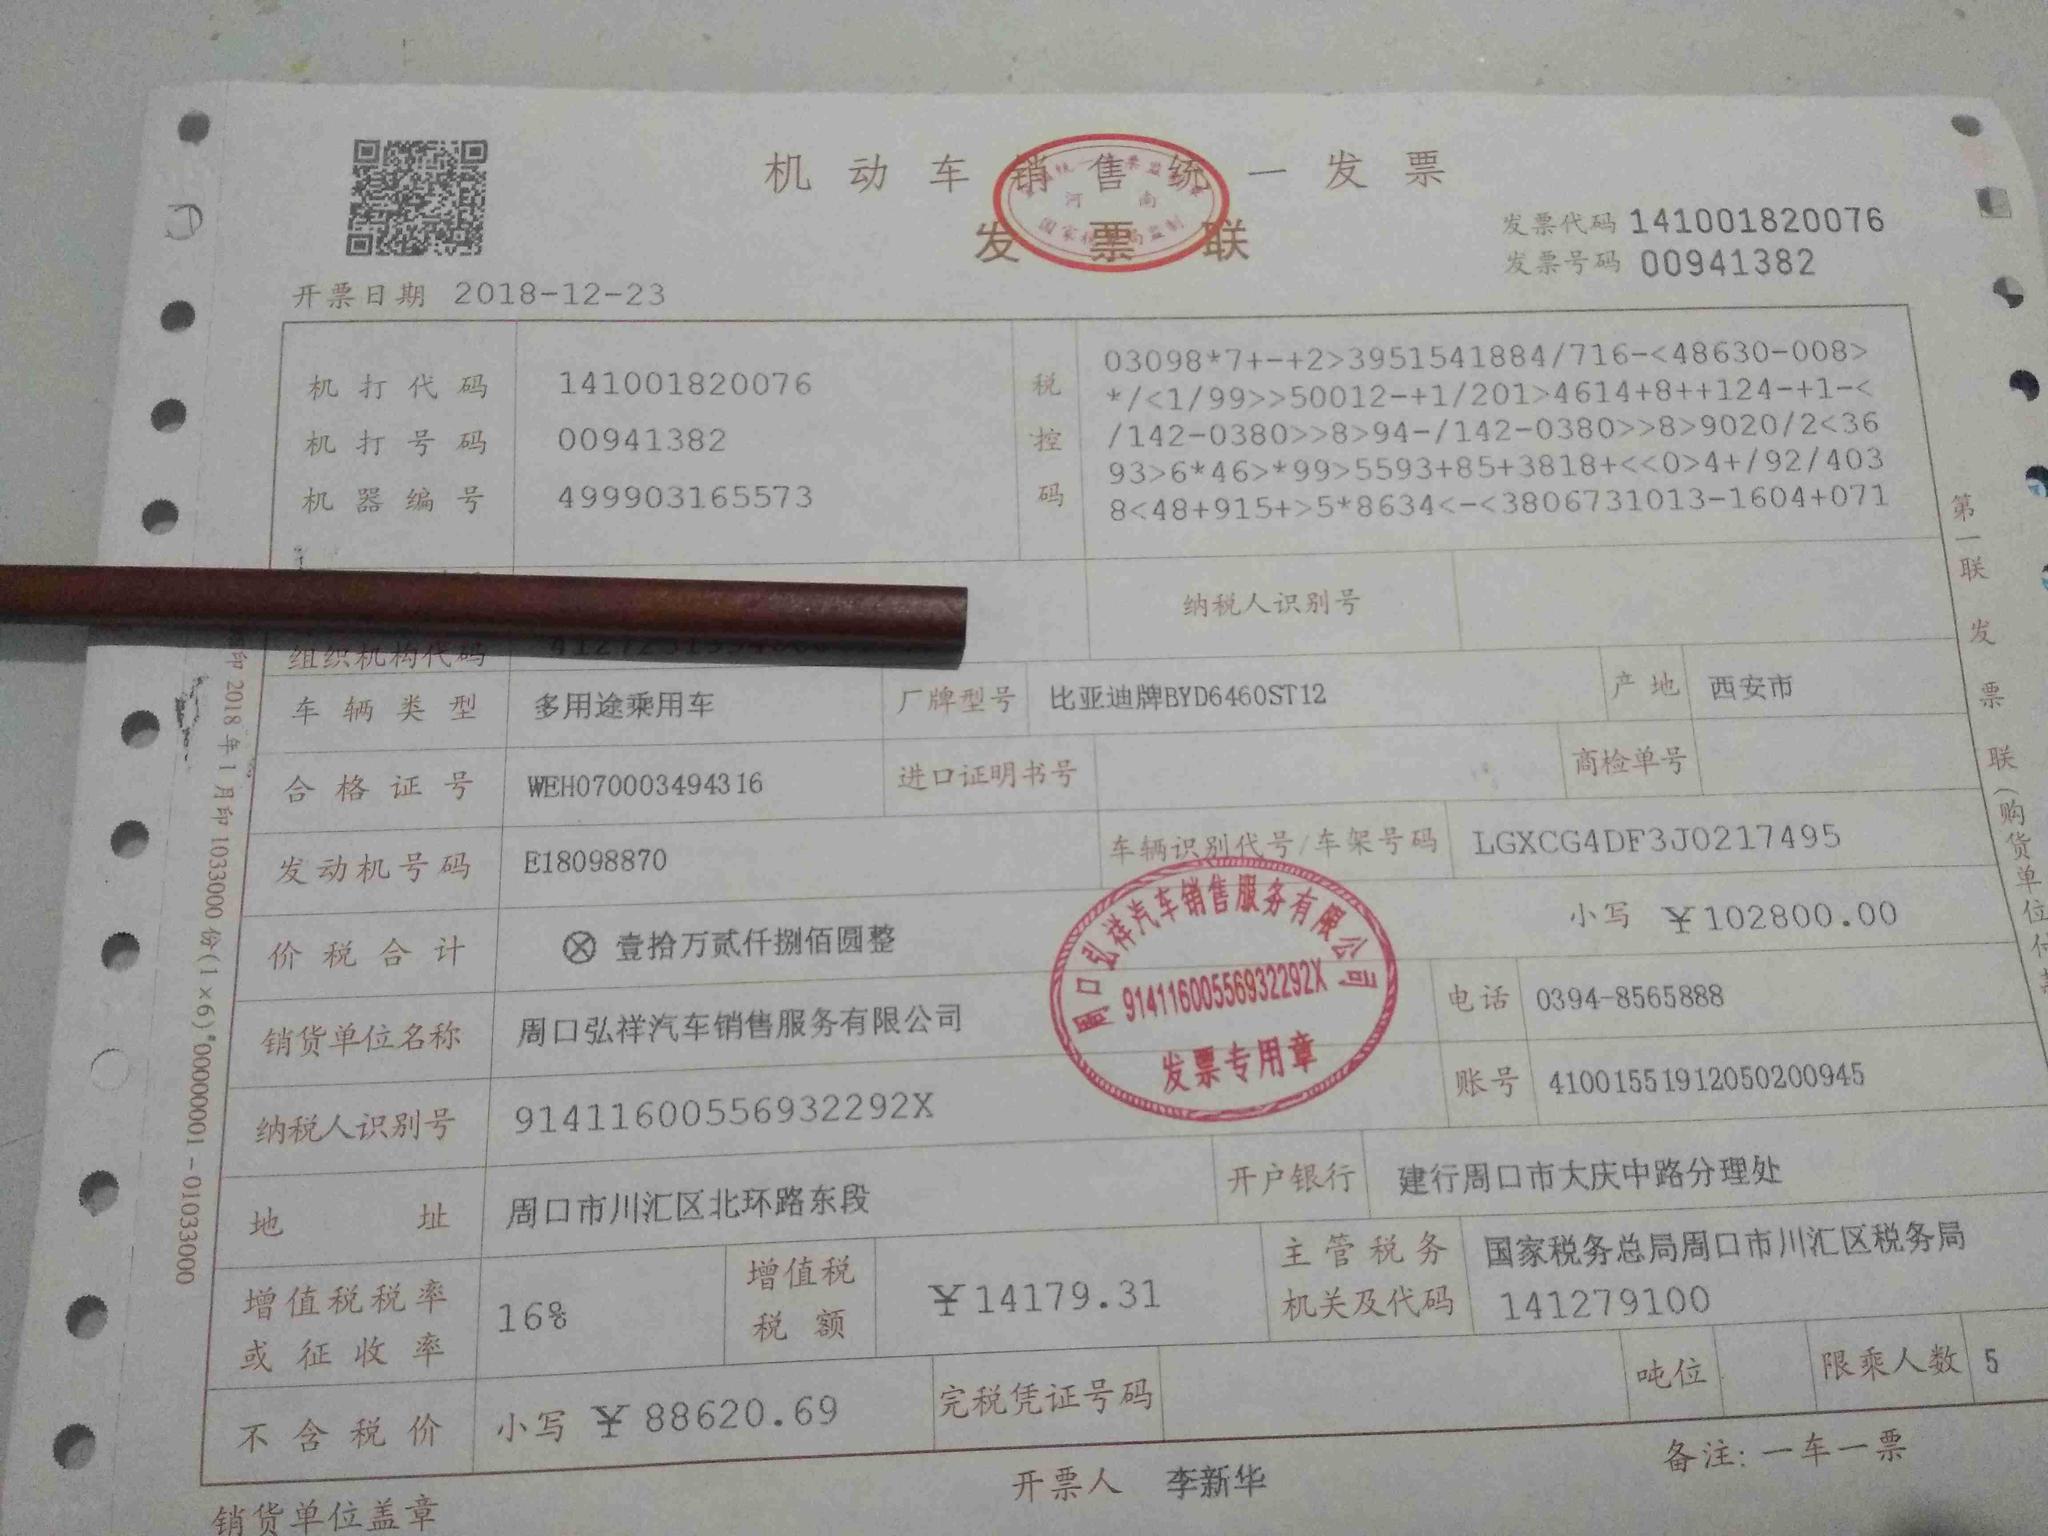 机动车销售统一发票
发票联
河南
发票代码 141001820076
发票号码 00941382
开票日期 2018-12-23
机打代码 141001820076
机打号码 00941382
机器编号 499903165573
税控码
03098*7+-+2>3951541884/716-<48630-008>
*/<1/99>>50012-+1/201>4614+8++124-+1-<
/142-0380>>8>94-/142-0380>>8>9020/2<36
93>6*46>*99>5593+85+3818+<<0>4+/92/403
8<48+915+>5*8634<-<3806731013-1604+071
纳税人识别号
组织机构代码
车辆类型 多用途乘用车 厂牌型号 比亚迪牌BYD6460ST12 产地 西安市
合格证号 WEH070003494316 进口证明书号 商检单号
发动机号码 E18098870 车辆识别代号/车架号码 LGXCG4DF3J0217495
价税合计 ⊗ 壹拾万贰仟捌佰圆整 小写 ¥102800.00
销货单位名称 周口弘祥汽车销售服务有限公司 电话 0394-8565888
纳税人识别号 91411600556932292X 账号 41001551912050200945
地址 周口市川汇区北环路东段 开户银行 建行周口市大庆中路分理处
增值税税率或征收率 16% 增值税税额 ¥14179.31 主管税务机关及代码 国家税务总局周口市川汇区税务局
141279100
不含税价 小写 ¥88620.69 完税凭证号码 吨位 限乘人数 5
销货单位盖章 开票人 李新华 备注:一车一票
周口弘祥汽车销售服务有限公司
91411600556932292X
发票专用章
第一联 发票联(购货单位付
印 2018 年 1 月印 1033000 份(1×6) 00000001-01033000